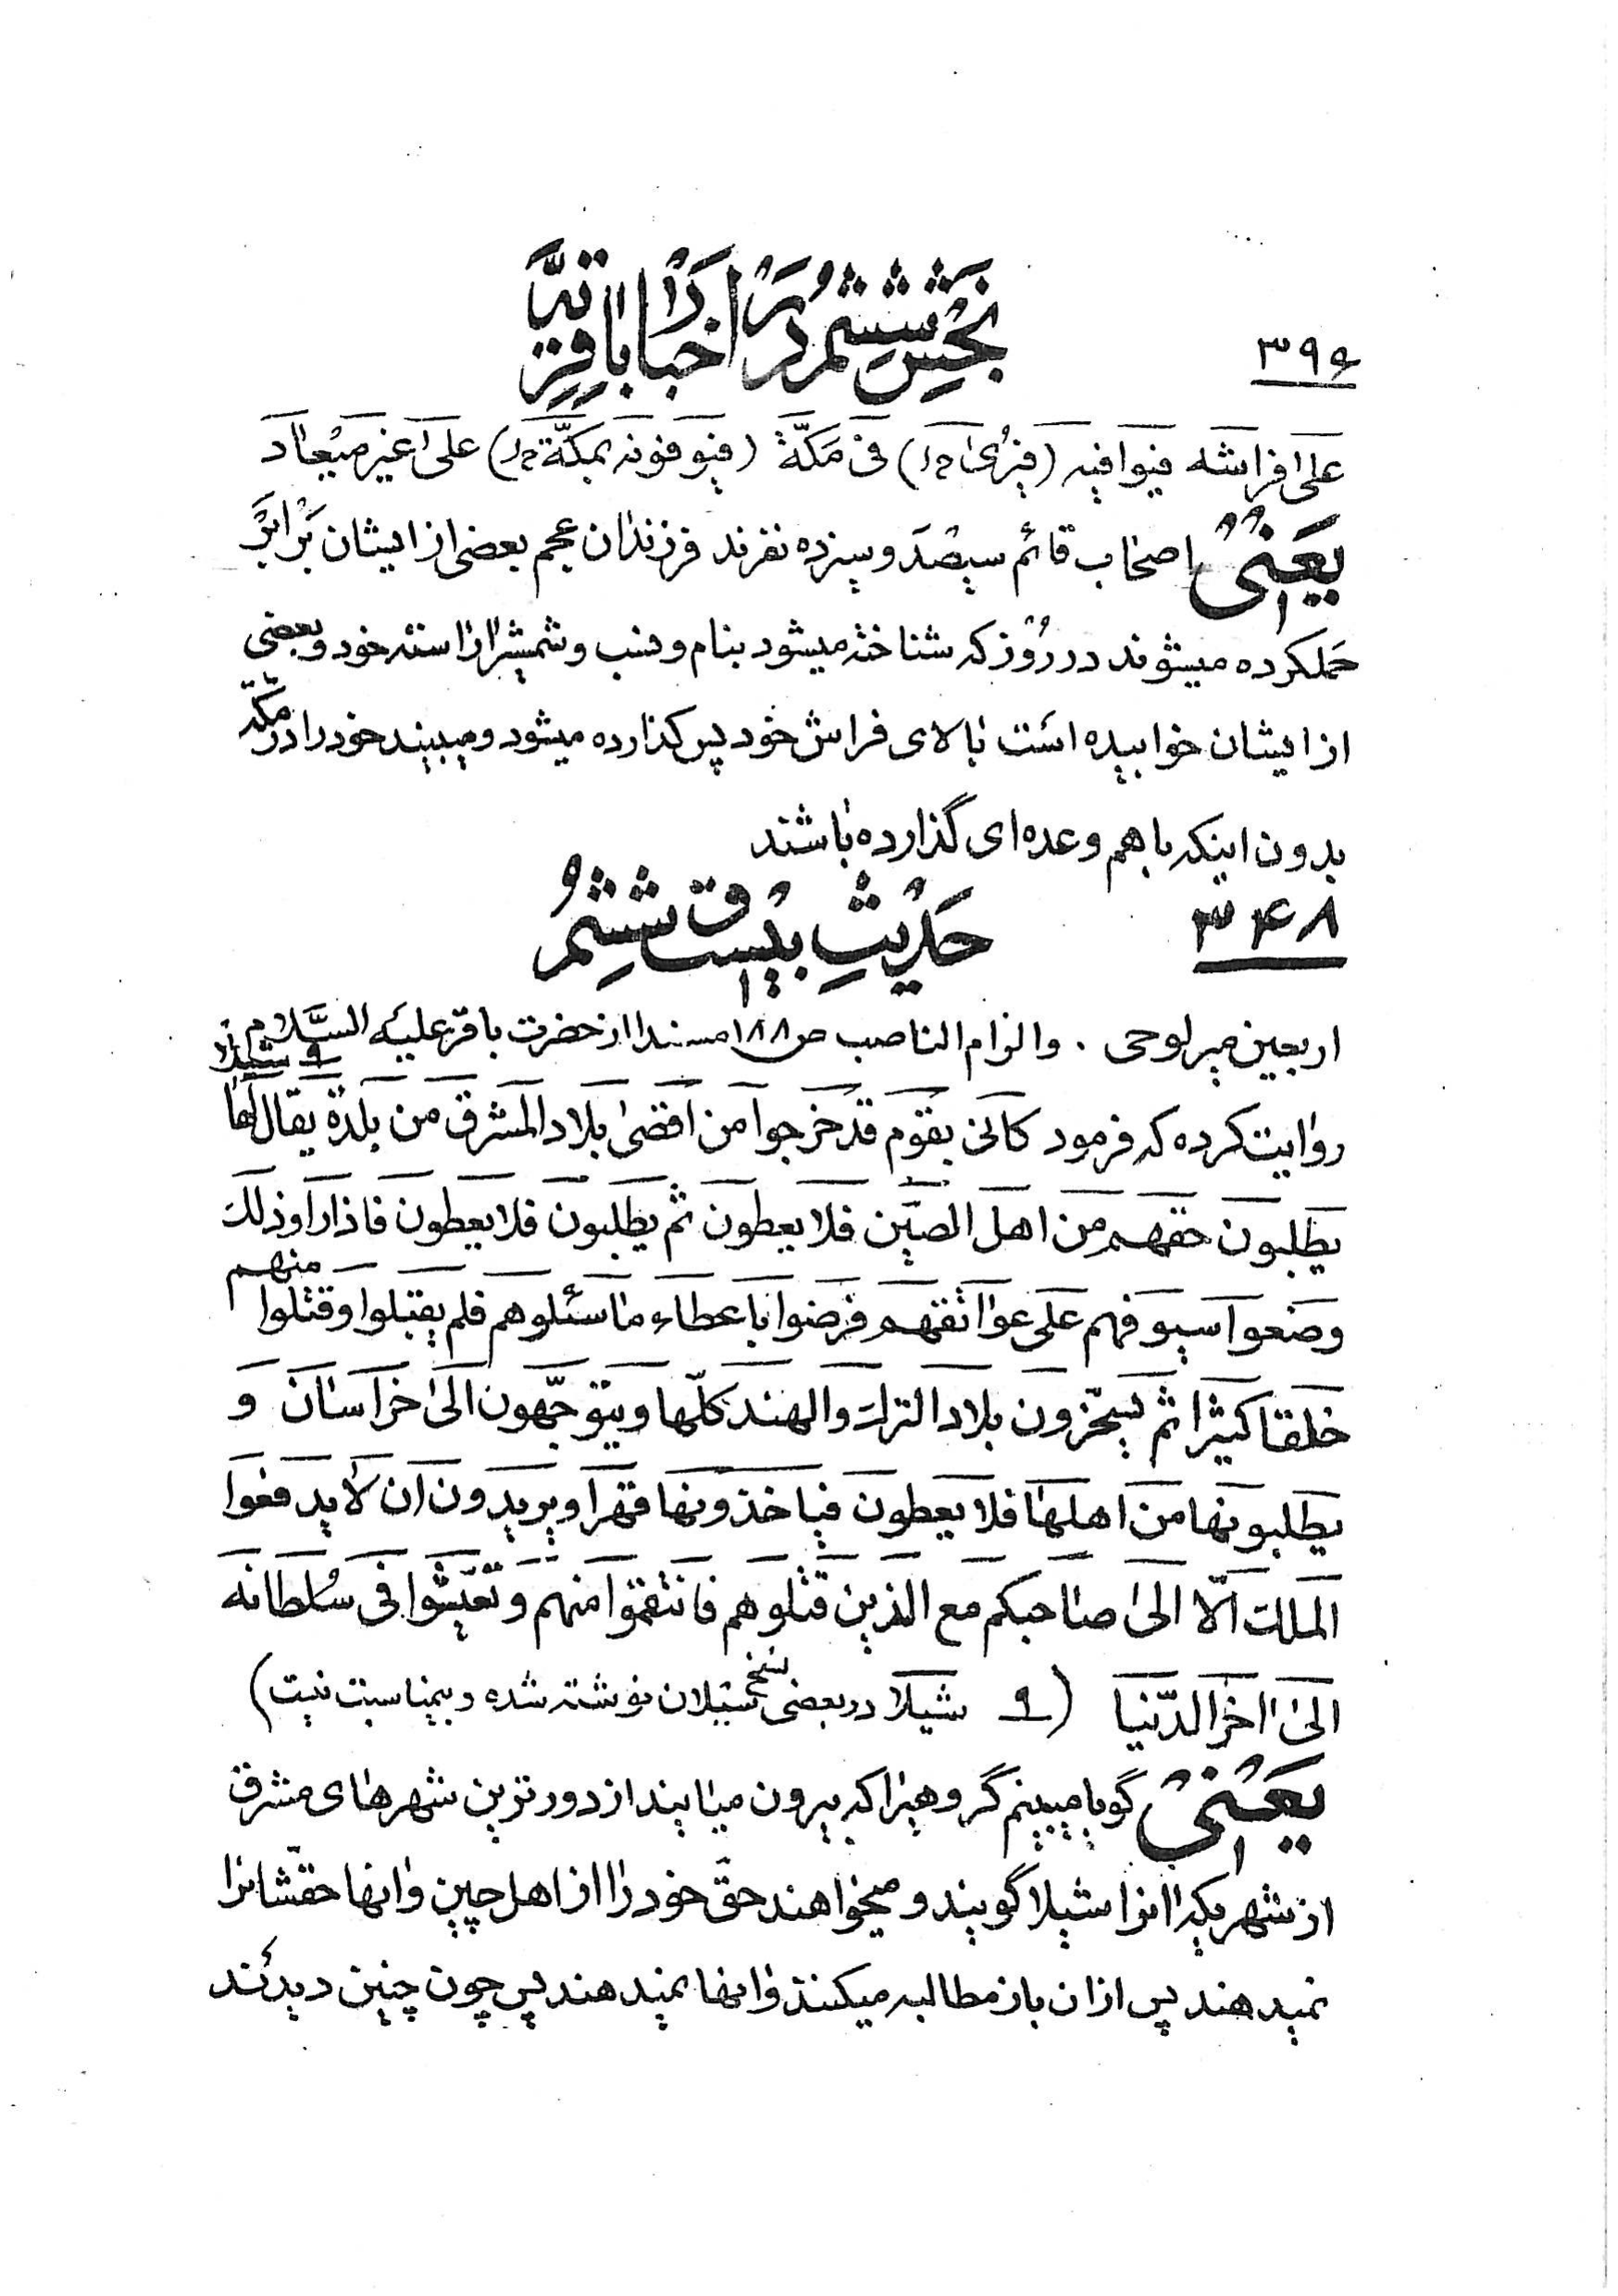 بخش ششم در اخبار باقریّه
۳۹۶
علی فراشه فیوافیه (فیری ۲ل) فی مَکّة (فیوفونه بمکّة ۲ل) علی غیر میعاد
یَعْنی اصحاب قائم سیصَد و سیزده نفرند فرزندان عجم بعضی از ایشان بَر ابر
حملکرده میشوند در روز که شناخته میشود بنام و نسب و شمشیر اراسته خود و بعضی
از ایشان خوابیده است بالای فراش خود پس گذارده میشود و میبیند خود را در مکّه
بدون اینکه با هم وعده‌ای گذارده باشند
۳۴۸
حَدیْثِ بیْست و ششم
اربعین میرلوحی . والزام الناصب ص ۱۸۸ مسندا از حضرت باقر علیه السّلام
روایت کرده که فرمود کانّی بقَوم قدْ خرجوا من اقصیٰ بلاد المشرق من بَلدة یقال لها ۹ شیلا
یطلبون حقهم من اهل الصّین فلا یعطون ثم یطلبون فلا یعطون فاذا راو ذلک
وضَعوا سیوفهم علی عواتقهم فرضوا باعطاء ما سئلوهم فلم یقبلوا و قتلوا منهم
خلقا کثیرا ثم یسخّرون بلاد الترک و الهند کلّها و یتوجّهون الیٰ خراسان و
یطلبونها من اهلها فلا یعطون فیاخذونها قهرا و یریدون ان لا یدفعوا
الملک الّا الیٰ صاحبکم مع الذین قتلوهم فانتقموا منهم و تعیّشوا فی سُلطانه
الیٰ اخر الدّنیا (۹ شیلا در بعضی نسخ شیلان نوشته شده و بیمناسبت نیست)
یَعْنی گویا میبینم گروهیرا که بیرون میایند از دورترین شهرهای مشرق
از شهریکه انرا شیلا گویند و میخواهند حقّ خود را از اهل چین و انها حقّشانرا
نمیدهند پس از ان باز مطالبه میکنند و انها نمیدهند پس چون چنین دیدند